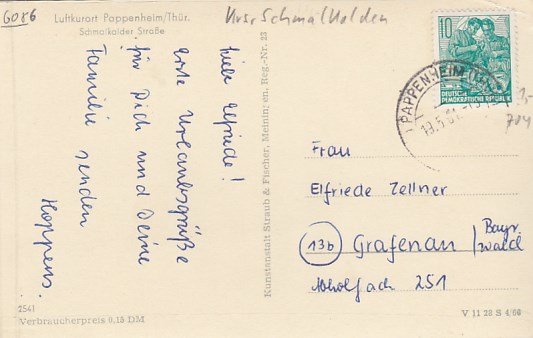 6086
Luftkurort Pappenheim/Thür.
Schmalkalder Straße
Krs. Schmalkalden
Liebe Elfriede!
erste Urlaubsgrüße
für Dich und Deine
Familie senden
Hoppens.
2541
Verbraucherpreis 0,15 DM
Kunstanstalt Straub & Fischer, Meinin; en. Reg.-Nr. 23
10
DEUTSCHE
DEMOKRATISCHE REPUBLIK
PAPPENHEIM
1,-
704
Frau
Elfriede Zellner
13b Grafenau / Bayr. wald
251
V 11 28 S 4/60